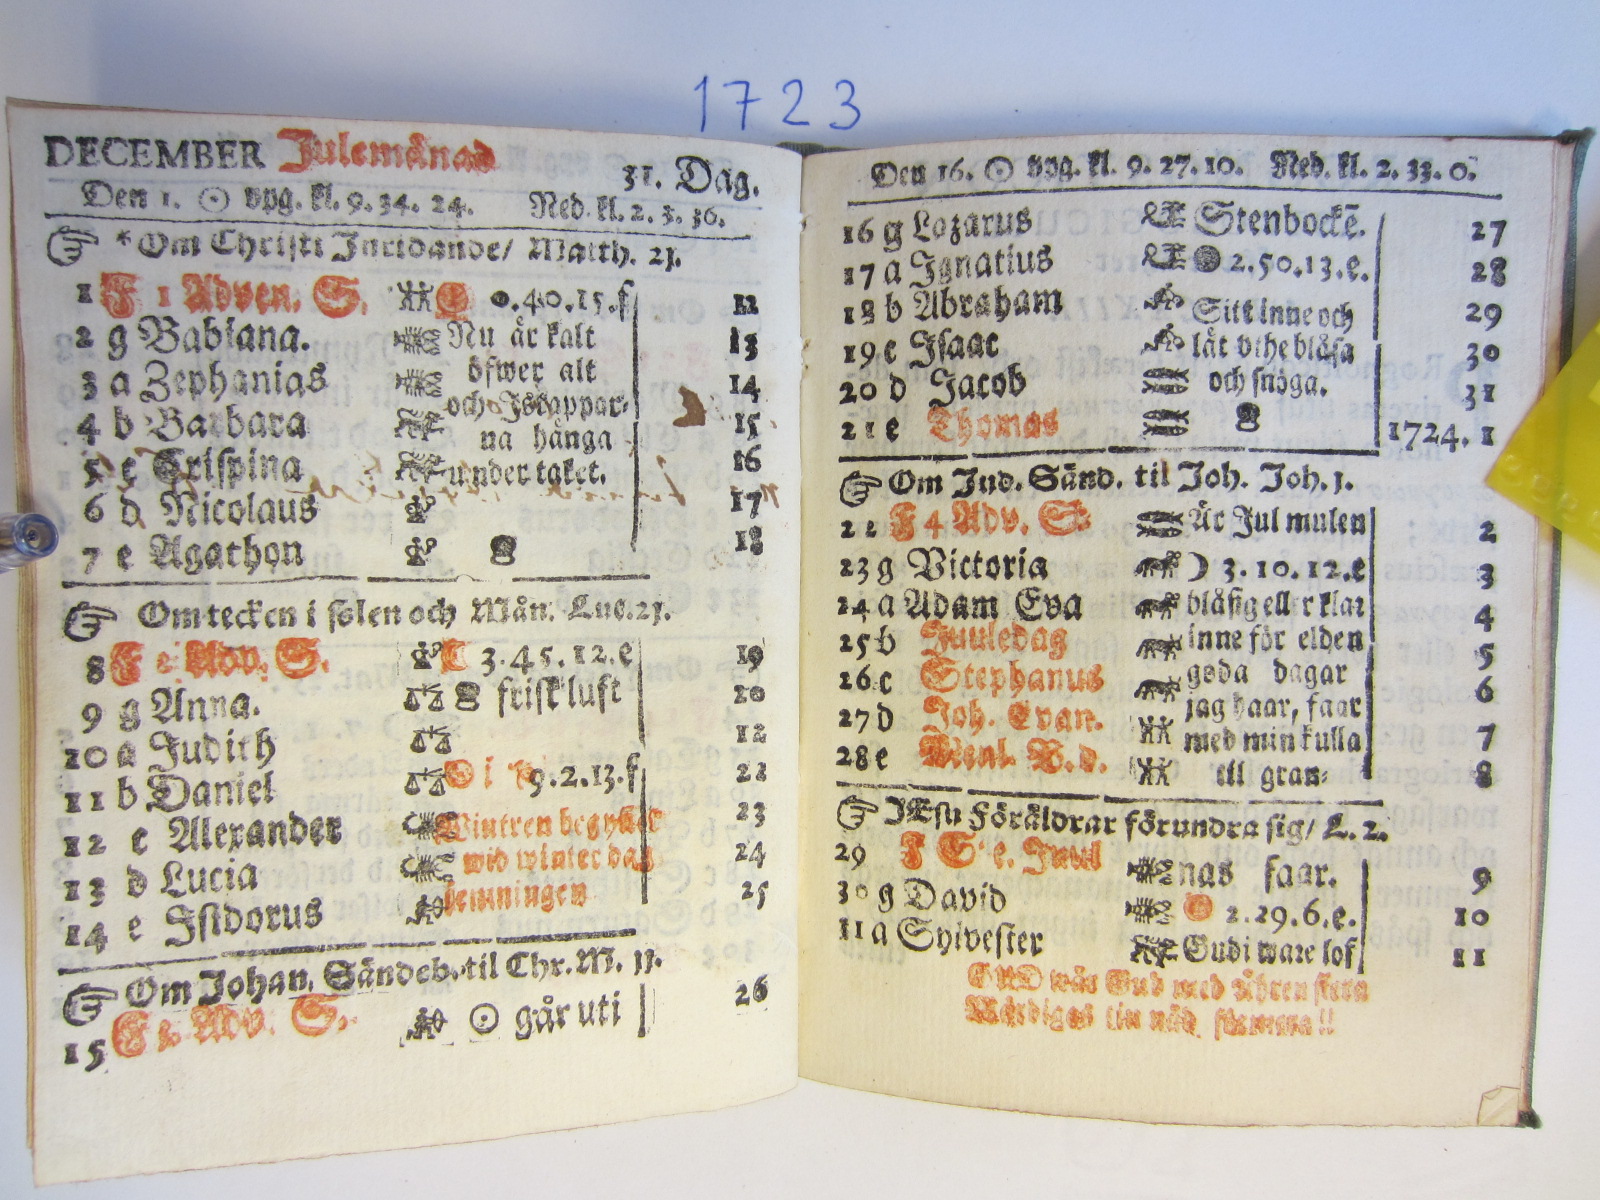 1723
DECEMBER Julemånad
31. Dag.
Den 1. ☉ vpg. kl. 9. 34. 24. Ned. kl. 2. 3. 36.
*Om Christi Inridande/ Matth. 21.
1 F 1 Adven. S. 0.40.15.f 12
2 g Babiana. Nu är kalt 13
3 a Zephanias öfwer alt 14
4 b Barbara och Iskappar- 15
5 c Crispina na hänga 16
6 d Nicolaus under taket. 17
7 e Agathon 18
Om tecken i solen och Mån. Luc. 21.
8 F 2 Adv. S. 3.45.12.e 19
9 g Anna. frisk luft 20
10 a Judith 12
11 b Daniel 9.2.13.f 22
12 c Alexander Wintren begynner 23
13 d Lucia wid winter dag 24
14 e Isidorus hemningen 25
Om Johan. Sändeb. til Chr. M. 11.
15 F 3. Adv. S. ☉ går uti 26
Den 16. ☉ vpg. kl. 9. 27. 10. Ned. kl. 2. 33. 0.
16 g Lazarus Stenbockē. 27
17 a Ignatius 2.50.13.e. 28
18 b Abraham Sitt inne och 29
19 c Isaac låt vthe blåsa 30
20 d Jacob och snöga. 31
21 e Thomas 1724. 1
Om Jud. Sänd. til Joh. Joh. 1.
22 F 4 Adv. S. Är Jul mulen 2
23 g Victoria ☽ 3.10.12.e 3
24 a Adam Eva blåsig eller klar 4
25 b Juuledag inne för elden 5
26 c Stephanus goda dagar 6
27 d Joh. Evan. jag haar, faar
med min kulla 7
28 e Menl. B. d. till gran- 8
JEsu Föräldrar förundra sig/ L. 2.
29 F S. e. Juul nas faar. 9
30 g David 2.29.6.e. 10
31 a Sylvester Gudi ware lof 11
GUD wår Gud med
Wärdigas